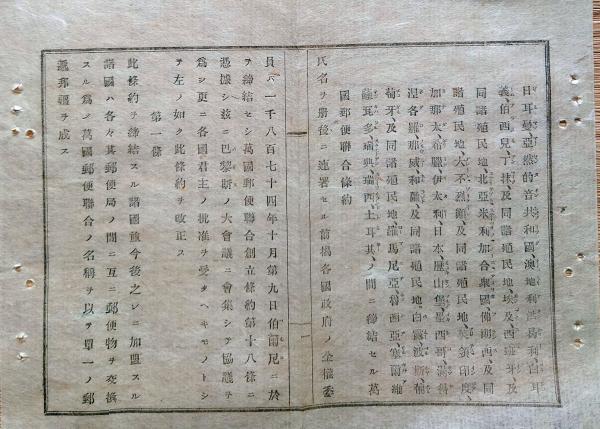 日耳曼亞爾的音共和國澳地利洪噶利白耳
義、伯西兒、丁抹、及同諸殖民地、埃及、西班牙及
同諸殖民地、北亞米利加合衆國、佛朗西、及同
諸殖民地、大不列顛及同諸殖民地、英領印度、
加那太、希臘、伊太利、日本、歷山堡、墨西哥、
涅各羅、那威、和蘭、及同諸殖民地、白露、波斯、葡
萄牙、及同諸殖民地、羅馬尼亞、魯西亞、塞爾維
薩瓦多、瑞典、瑞西、土耳其、ノ間ニ締結セル萬
國郵便聯合條約
氏名ヲ册後ニ連署セル前揭各國政府ノ全權委
員ハ一千八百七十四年十月第九日伯爾尼ニ於
テ締結セシ萬國郵便聯合創立條約第十八條ニ
憑據シ玆ニ巴黎斯ノ大會議ニ會集シテ協議ヲ
爲シ更ニ各國君主ノ批准ヲ受クヘキモノトシ
テ左ノ如ク此條約ヲ改正ス
第一條
此條約ヲ締結スル諸國並今後之レニ加盟スル
諸國ハ各々其郵便局ノ間ニ互ニ郵便物ヲ交換
スル爲メ萬國郵便聯合ノ名稱ヲ以テ單一ノ郵
遞郵疆ヲ成ス